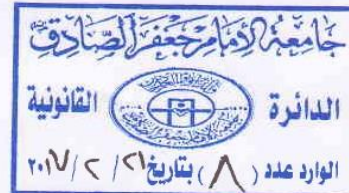 جامعة الإمام جعفر الصادق
الدائرة القانونية
الوارد عدد (٨) بتاريخ ٢١/٢/٢٠١٧